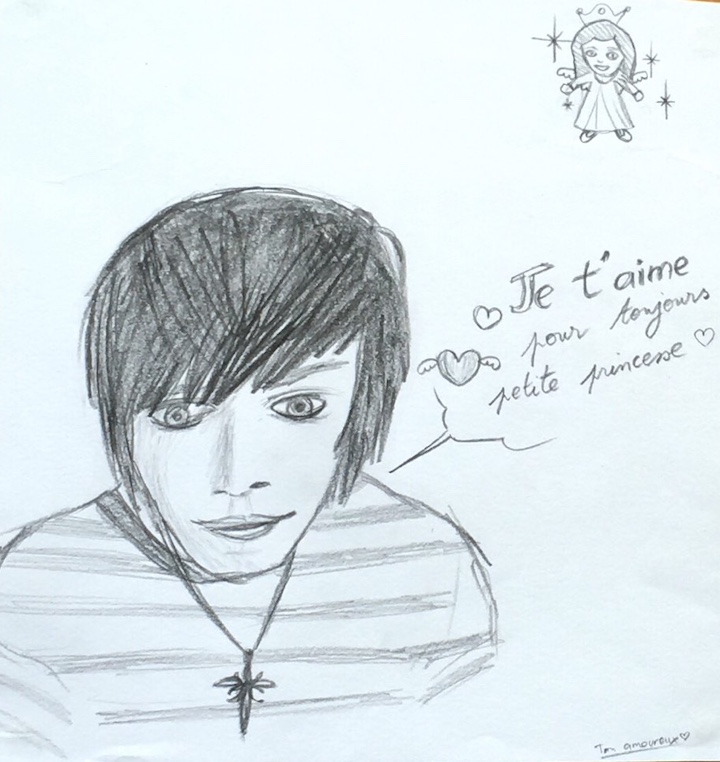 Je t'aime
pour toujours
petite princesse
Ton amoureux